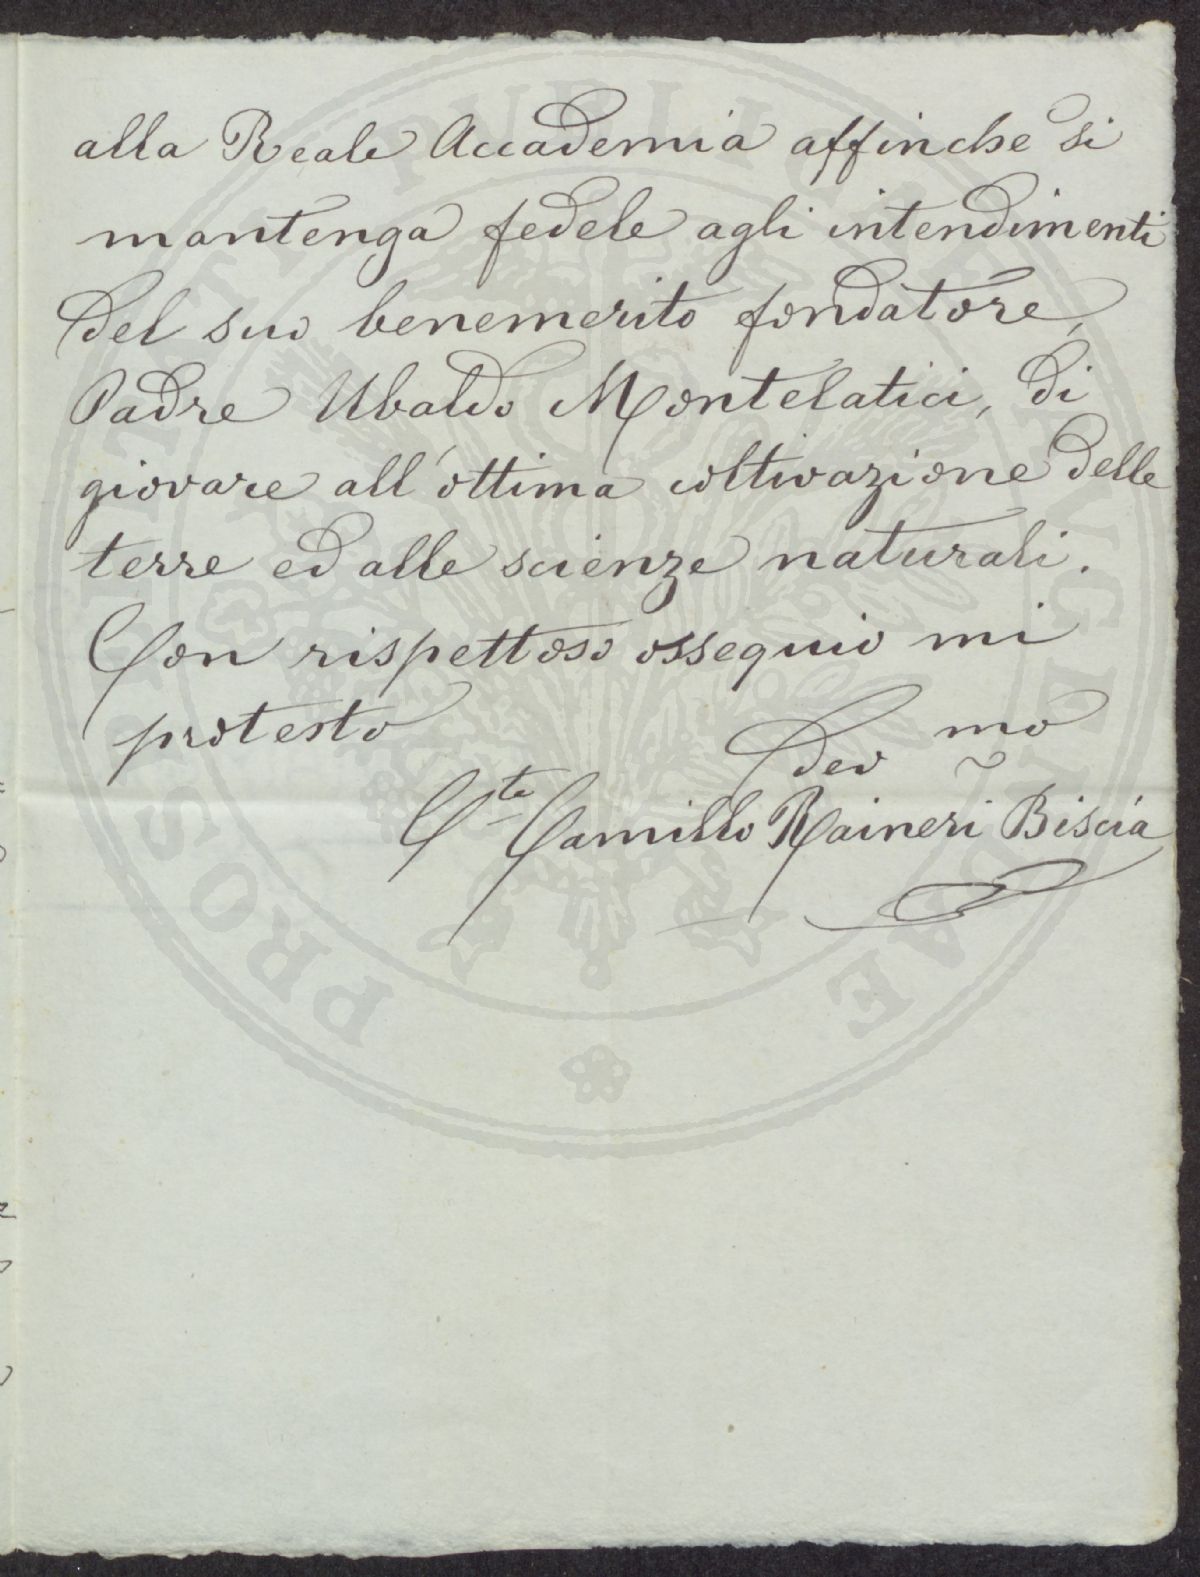 alla Reale Accademia affinche si
mantenga fedele agli intendimenti
del suo benemerito fondatore,
Padre Ubaldo Montelatici, di
giovare all'ottima coltivazione delle
terre ed alle scienze naturali.
Con rispettoso ossequio mi
protesto
Dev mo
C te Camillo Raineri Biscia
PROSPERITATI PUBLICAE AVGENDAE